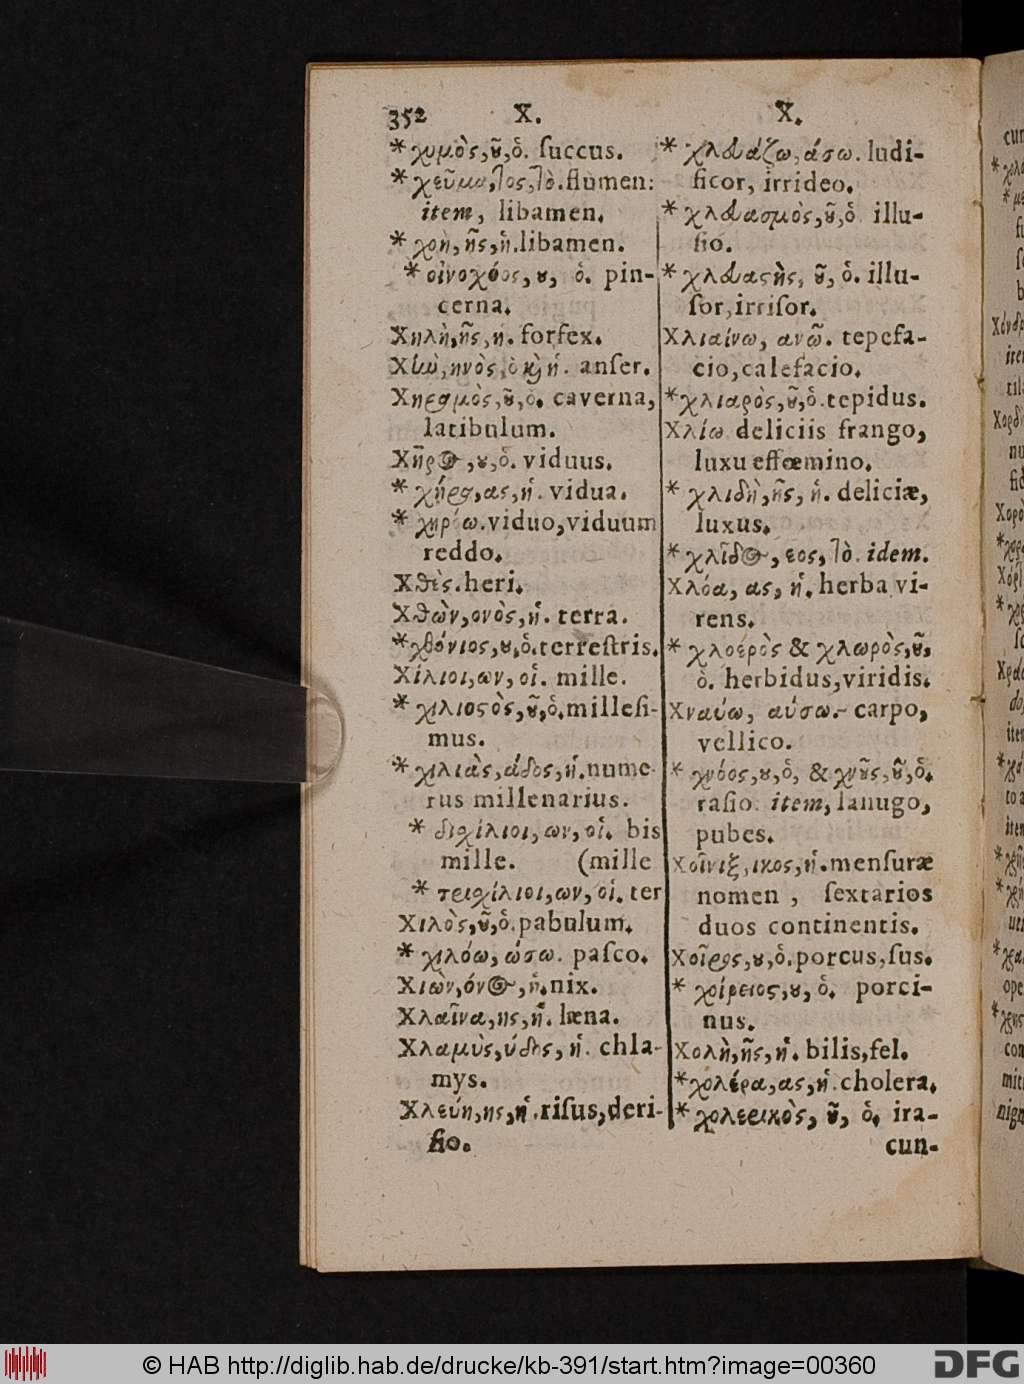 352 X. X.
* χυμὸς, ȣ͂, ὁ. ſuccus.
* χεῦμα, τος, τὸ. flumen:
item, libamen.
* χοὴ, ῆς, ἡ. libamen.
* οἰνοχόος, ȣ, ὁ. pin-
cerna.
Χηλὴ, ῆς, ἡ. forfex.
Χὴν, ηνὸς, ὁ κὴ ἡ. anſer.
Χηραμὸς, ȣ͂, ὁ. caverna,
latibulum.
Χῆρος, ȣ, ὁ. viduus.
* χήρα, ας, ἡ. vidua.
* χηρόω. viduo, viduum
reddo.
Χθὲς. heri.
Χθὼν, ονὸς, ἡ. terra.
* χθόνιος, ȣ, ὁ. terreſtris.
Χίλιοι, ων, οἱ. mille.
* χιλιοϛὸς, ȣ͂, ὁ. milleſi-
mus.
* χιλιὰς, άδος, ἡ. nume-
rus millenarius.
* διχίλιοι, ων, οἱ. bis
mille. (mille
* τριχίλιοι, ων, οἱ. ter
Χιλὸς, ȣ͂, ὁ. pabulum.
* χιλόω, ώσω. paſco.
Χιὼν, όνος, ἡ. nix.
Χλαῖνα, ης, ἡ. læna.
Χλαμὺς, ύδος, ἡ. chla-
mys.
Χλεύη, ης, ἡ. riſus, deri-
ſio.
* χλευάζω, άσω. ludi-
ficor, irrideo.
* χλευασμὸς, ȣ͂, ὁ illu-
ſio.
* χλευαϛὴς, ȣ͂, ὁ. illu-
ſor, irriſor.
Χλιαίνω, ανῶ. tepefa-
cio, calefacio.
* χλιαρὸς, ȣ͂, ὁ. tepidus.
Χλίω deliciis frango,
luxu effœmino.
* χλιδὴ, ῆς, ἡ. deliciæ,
luxus.
* χλῖδος, εος, τὸ. idem.
Χλόα, ας, ἡ. herba vi-
rens.
* χλοερὸς & χλωρὸς, ȣ͂,
ὁ. herbidus, viridis.
Χναύω, αύσω. carpo,
vellico.
* χνόος, ȣ, ὁ, & χνȣ͂ς, ȣ͂, ὁ.
raſio. item, lanugo,
pubes.
Χοῖνιξ, ικος, ἡ. menſuræ
nomen, ſextarios
duos continentis.
Χοῖρος, ȣ, ὁ. porcus, ſus.
* χοίρειος, ȣ, ὁ. porci-
nus.
Χολὴ, ῆς, ἡ. bilis, fel.
* χολέρα, ας, ἡ. cholera.
* χολερικὸς, ȣ͂, ὁ. ira-
cun-
© HAB http://diglib.hab.de/drucke/kb-391/start.htm?image=00360
DFG